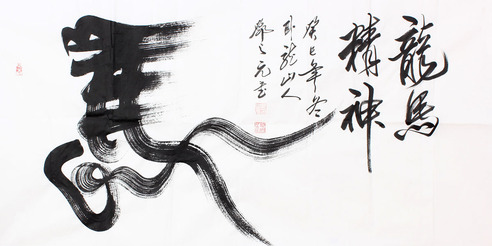 龍馬
精神
癸巳年冬
卧龍山人
之元
馬